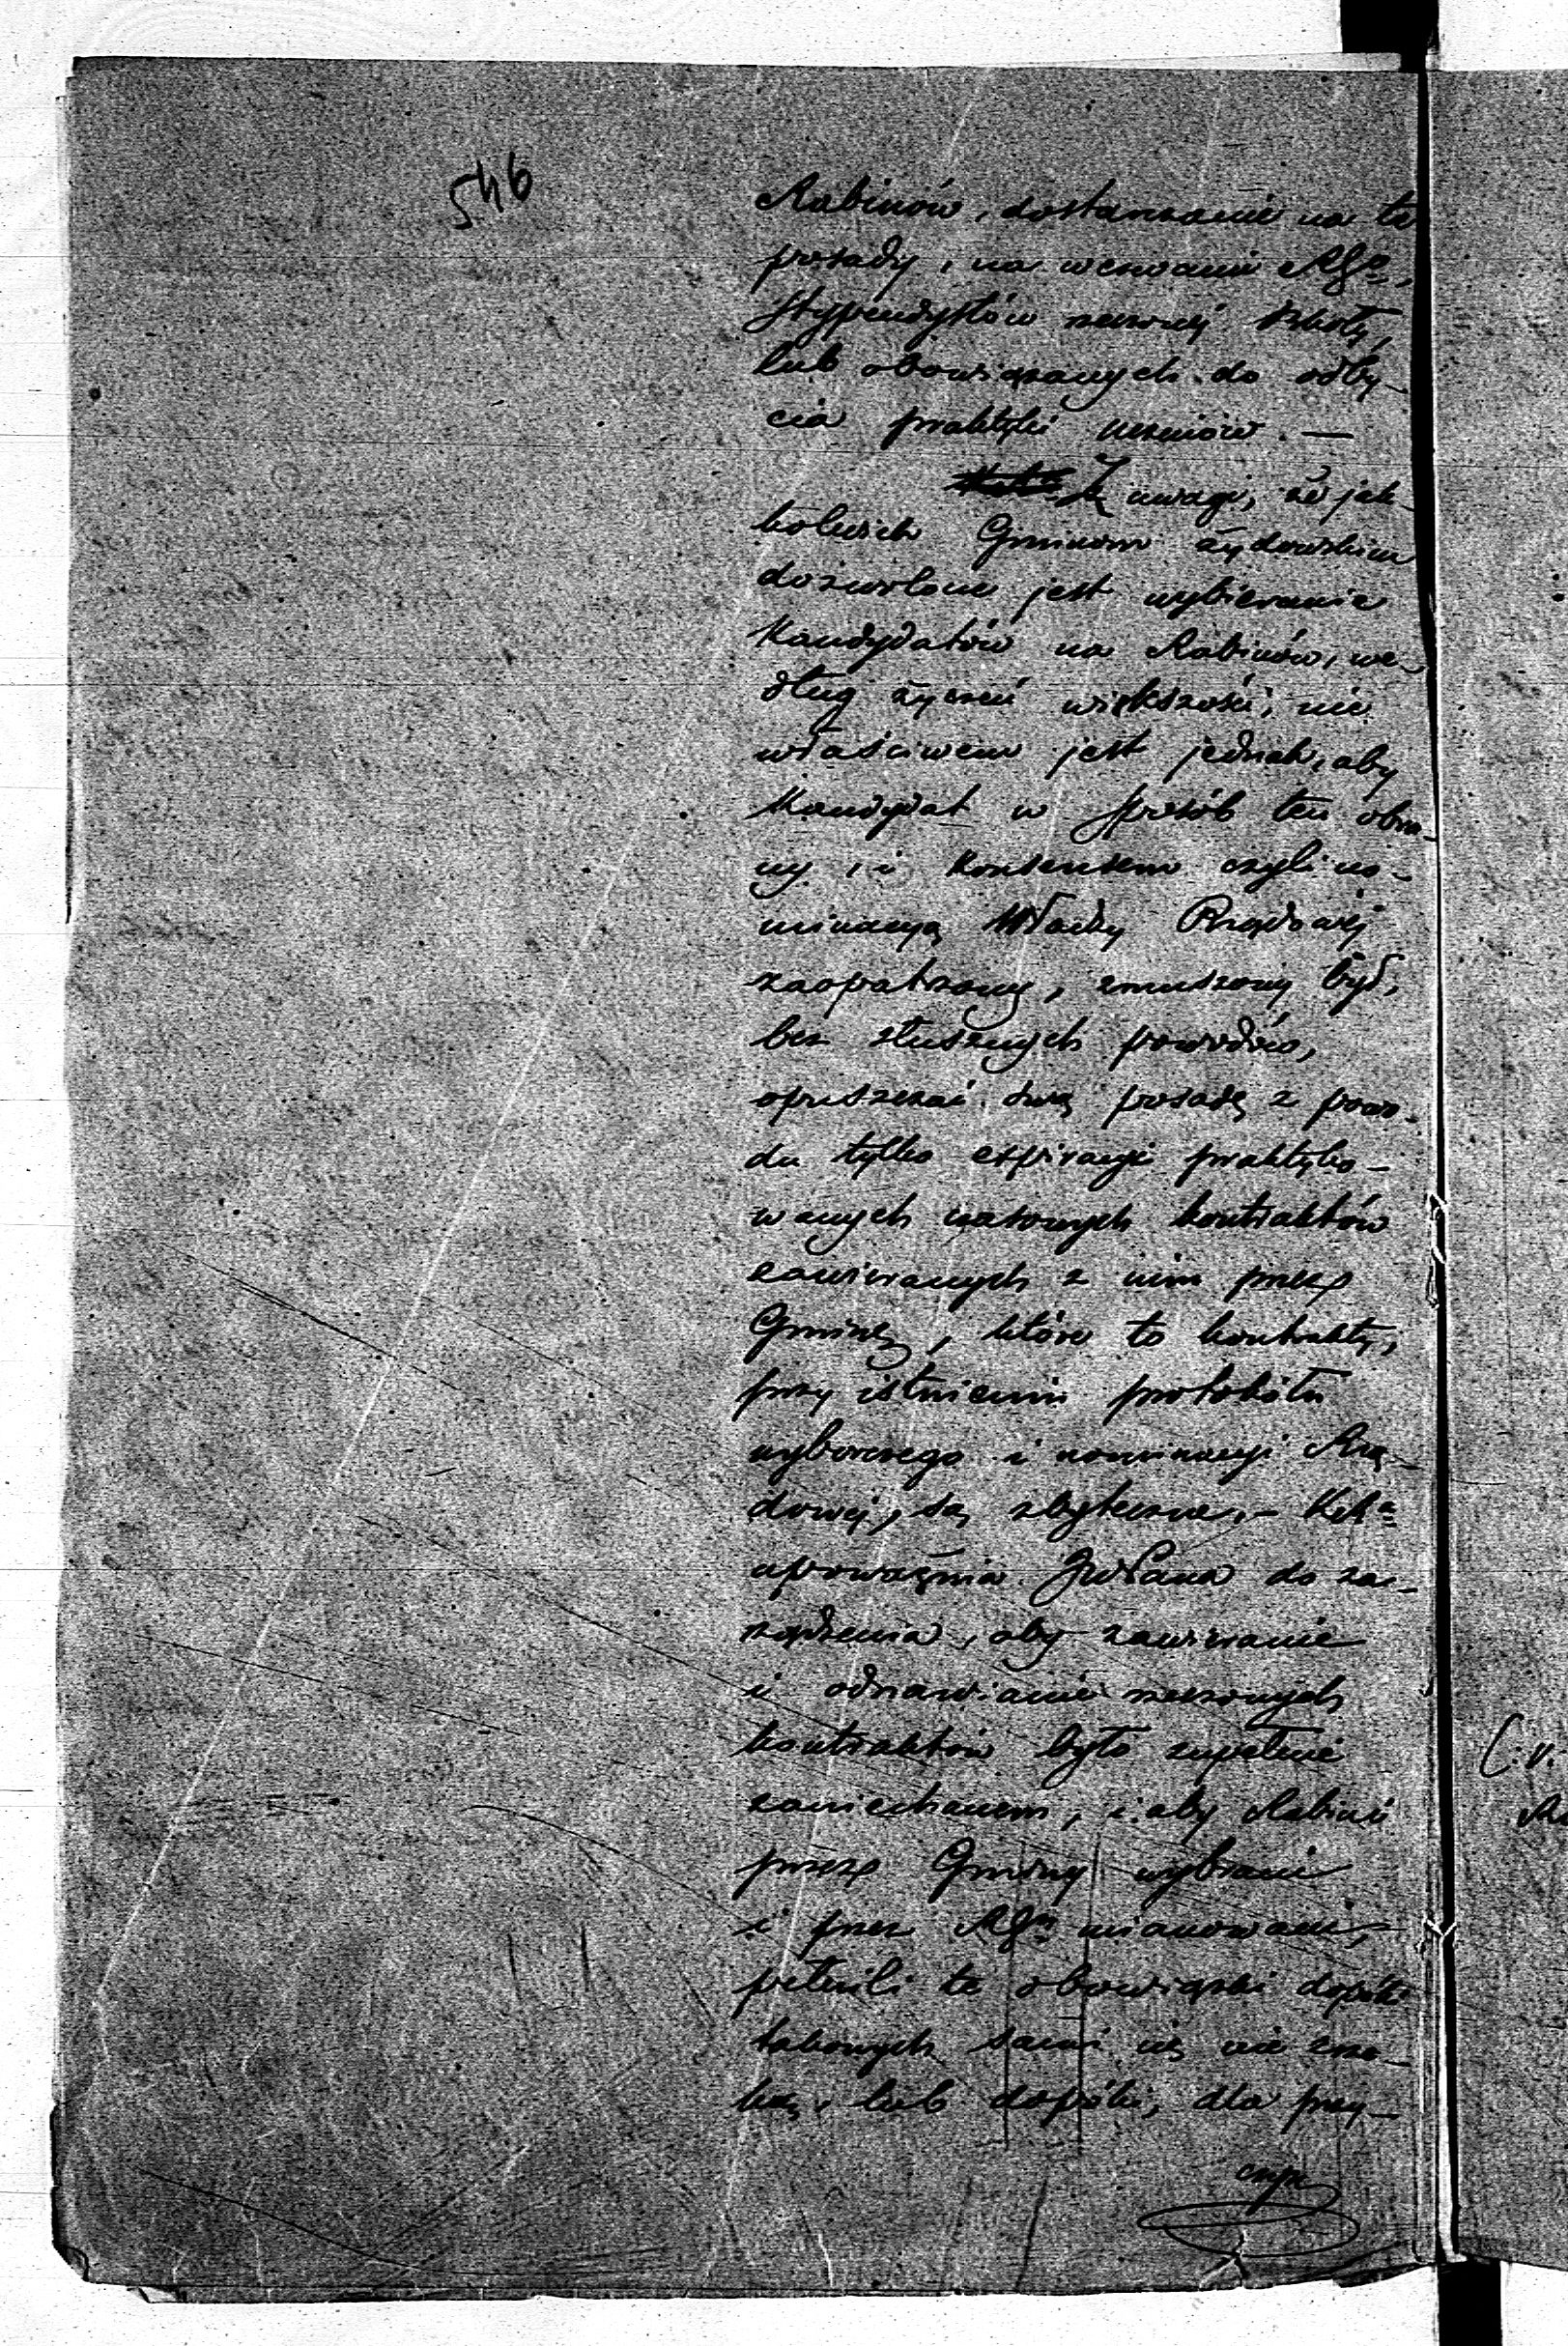 546
Rabinów, dostarczanie na te
posady, na wezwanie RGo,
Stypendystów rzeczonej szkoły,
lub obowiązanych do odby-
cia praktyki uczniów. —
Z uwagi, że jak-
kolwiek Gminom żydowskim
dozwolone jest wybieranie
Kandydatów na Rabinów, we-
dług życzeń większości, nie
właściwem jest jednak, aby
Kandydat w sposób ten obra-
ny, i konsensem czyli no-
minacyą Władzy Rządowej
zaopatrzony, zmuszony był,
bez słusznych powodów,
opuszczać swą posadę z powo-
du tylko expiracyi praktyko-
wanych czasowych kontraktów
zawieranych z nim przez
Gminę, które to kontrakty,
przy istnieniu protokółu
wyborczego i nominacyi Rzą-
dowej, są zbyteczne, –
upoważnia JWPana do za-
rządzenia, aby zawieranie
i odnawianie rzeczonych
kontraktów było zupełnie
zaniechanem, i aby Rabini
przez Gminy wybrani
i przez RGn mianowani,
pełnili te obowiązki dopóki
takowych sami się nie zrze-
kną, lub dopóki, dla przy-
czyn
(: v.